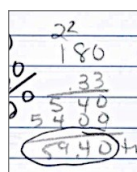 2²
180
.33
540
5400
59.40